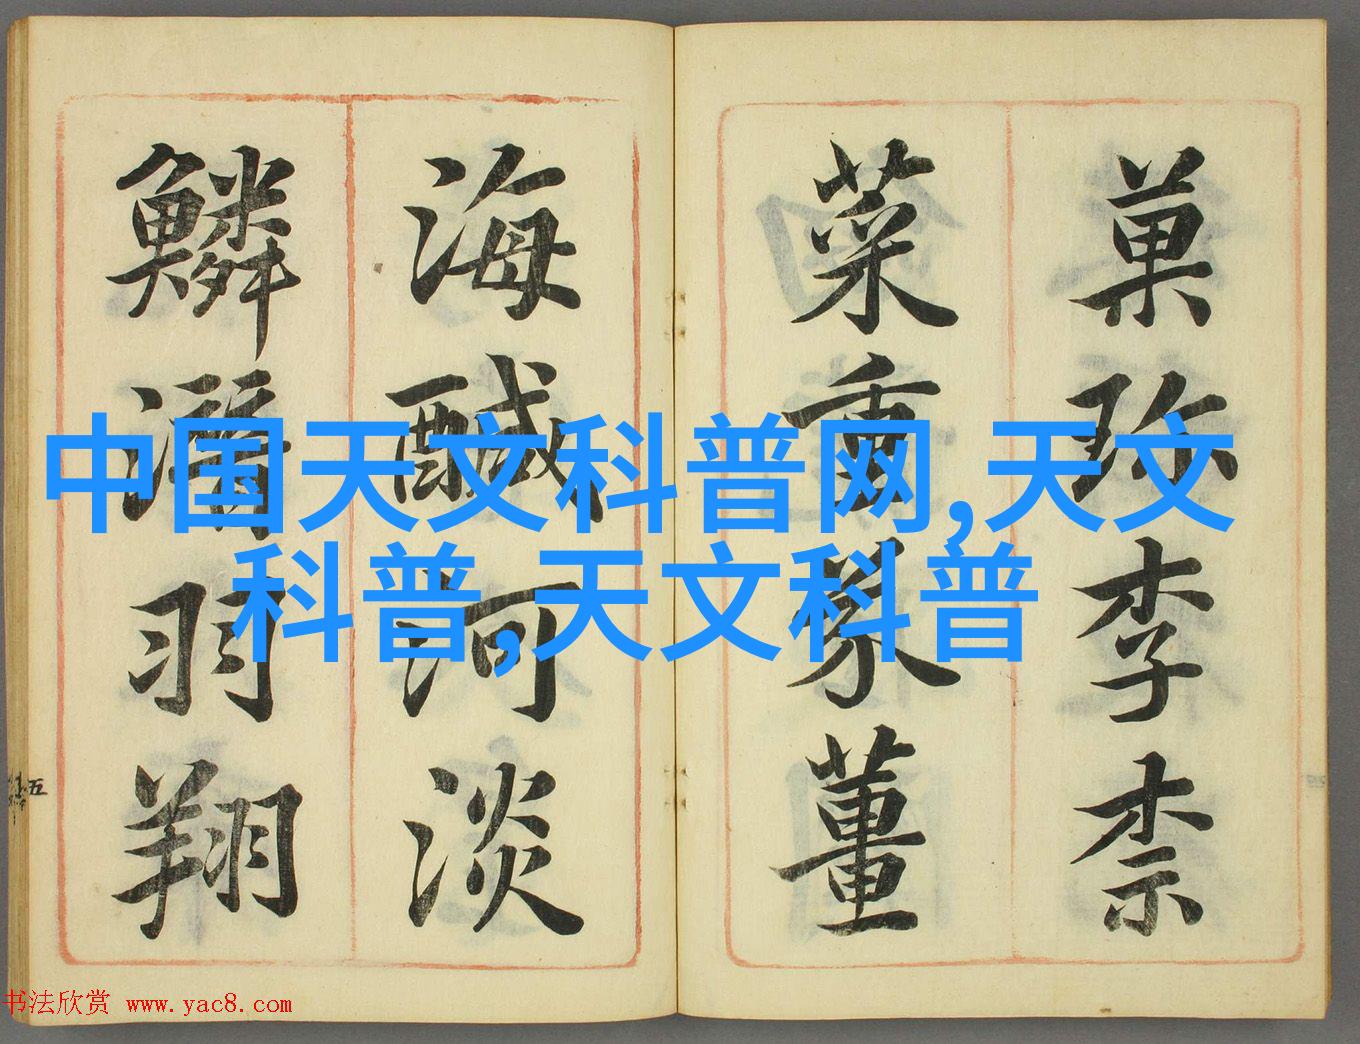 菓珍李柰
菜重芥薑
海醎河淡
鱗潛羽翔
五
中国天文科普网,天文
科普,天文科普
书法欣赏 www.yac8.com